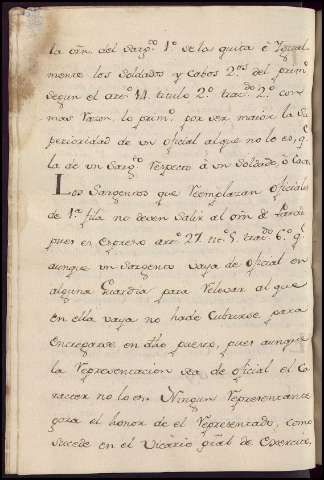 la orñ. del Sargto. 1º se las quita è Igual
mente los Soldados y Cabos 2.os del prim.º
segun el arto. 14 titulo 2º tracdo. 2º con
mas razon, lo prim.º por ser maior la Su
perioridad de un oficial al que no lo es, q.e
la de un Sargto. respecto à un Soldado, ô Cabo
Los Sargentos que reemplazan oficiales
de 1ª fila no deven salir al orñ de
pues es expreso arto. 27. tit.º 5. tracdo. 6.º q.e
aunque un Sargento vaya de oficial en
alguna Guardia para relevar al que
en ella vaya no hade cubrirse para
entregarse en dho puesto, pues aunque
la representacion sea de oficial el Ca
racter no lo es Ningun representante
goza el honor de el representado, como
sucede en el Vicàrio gral de Exercito,